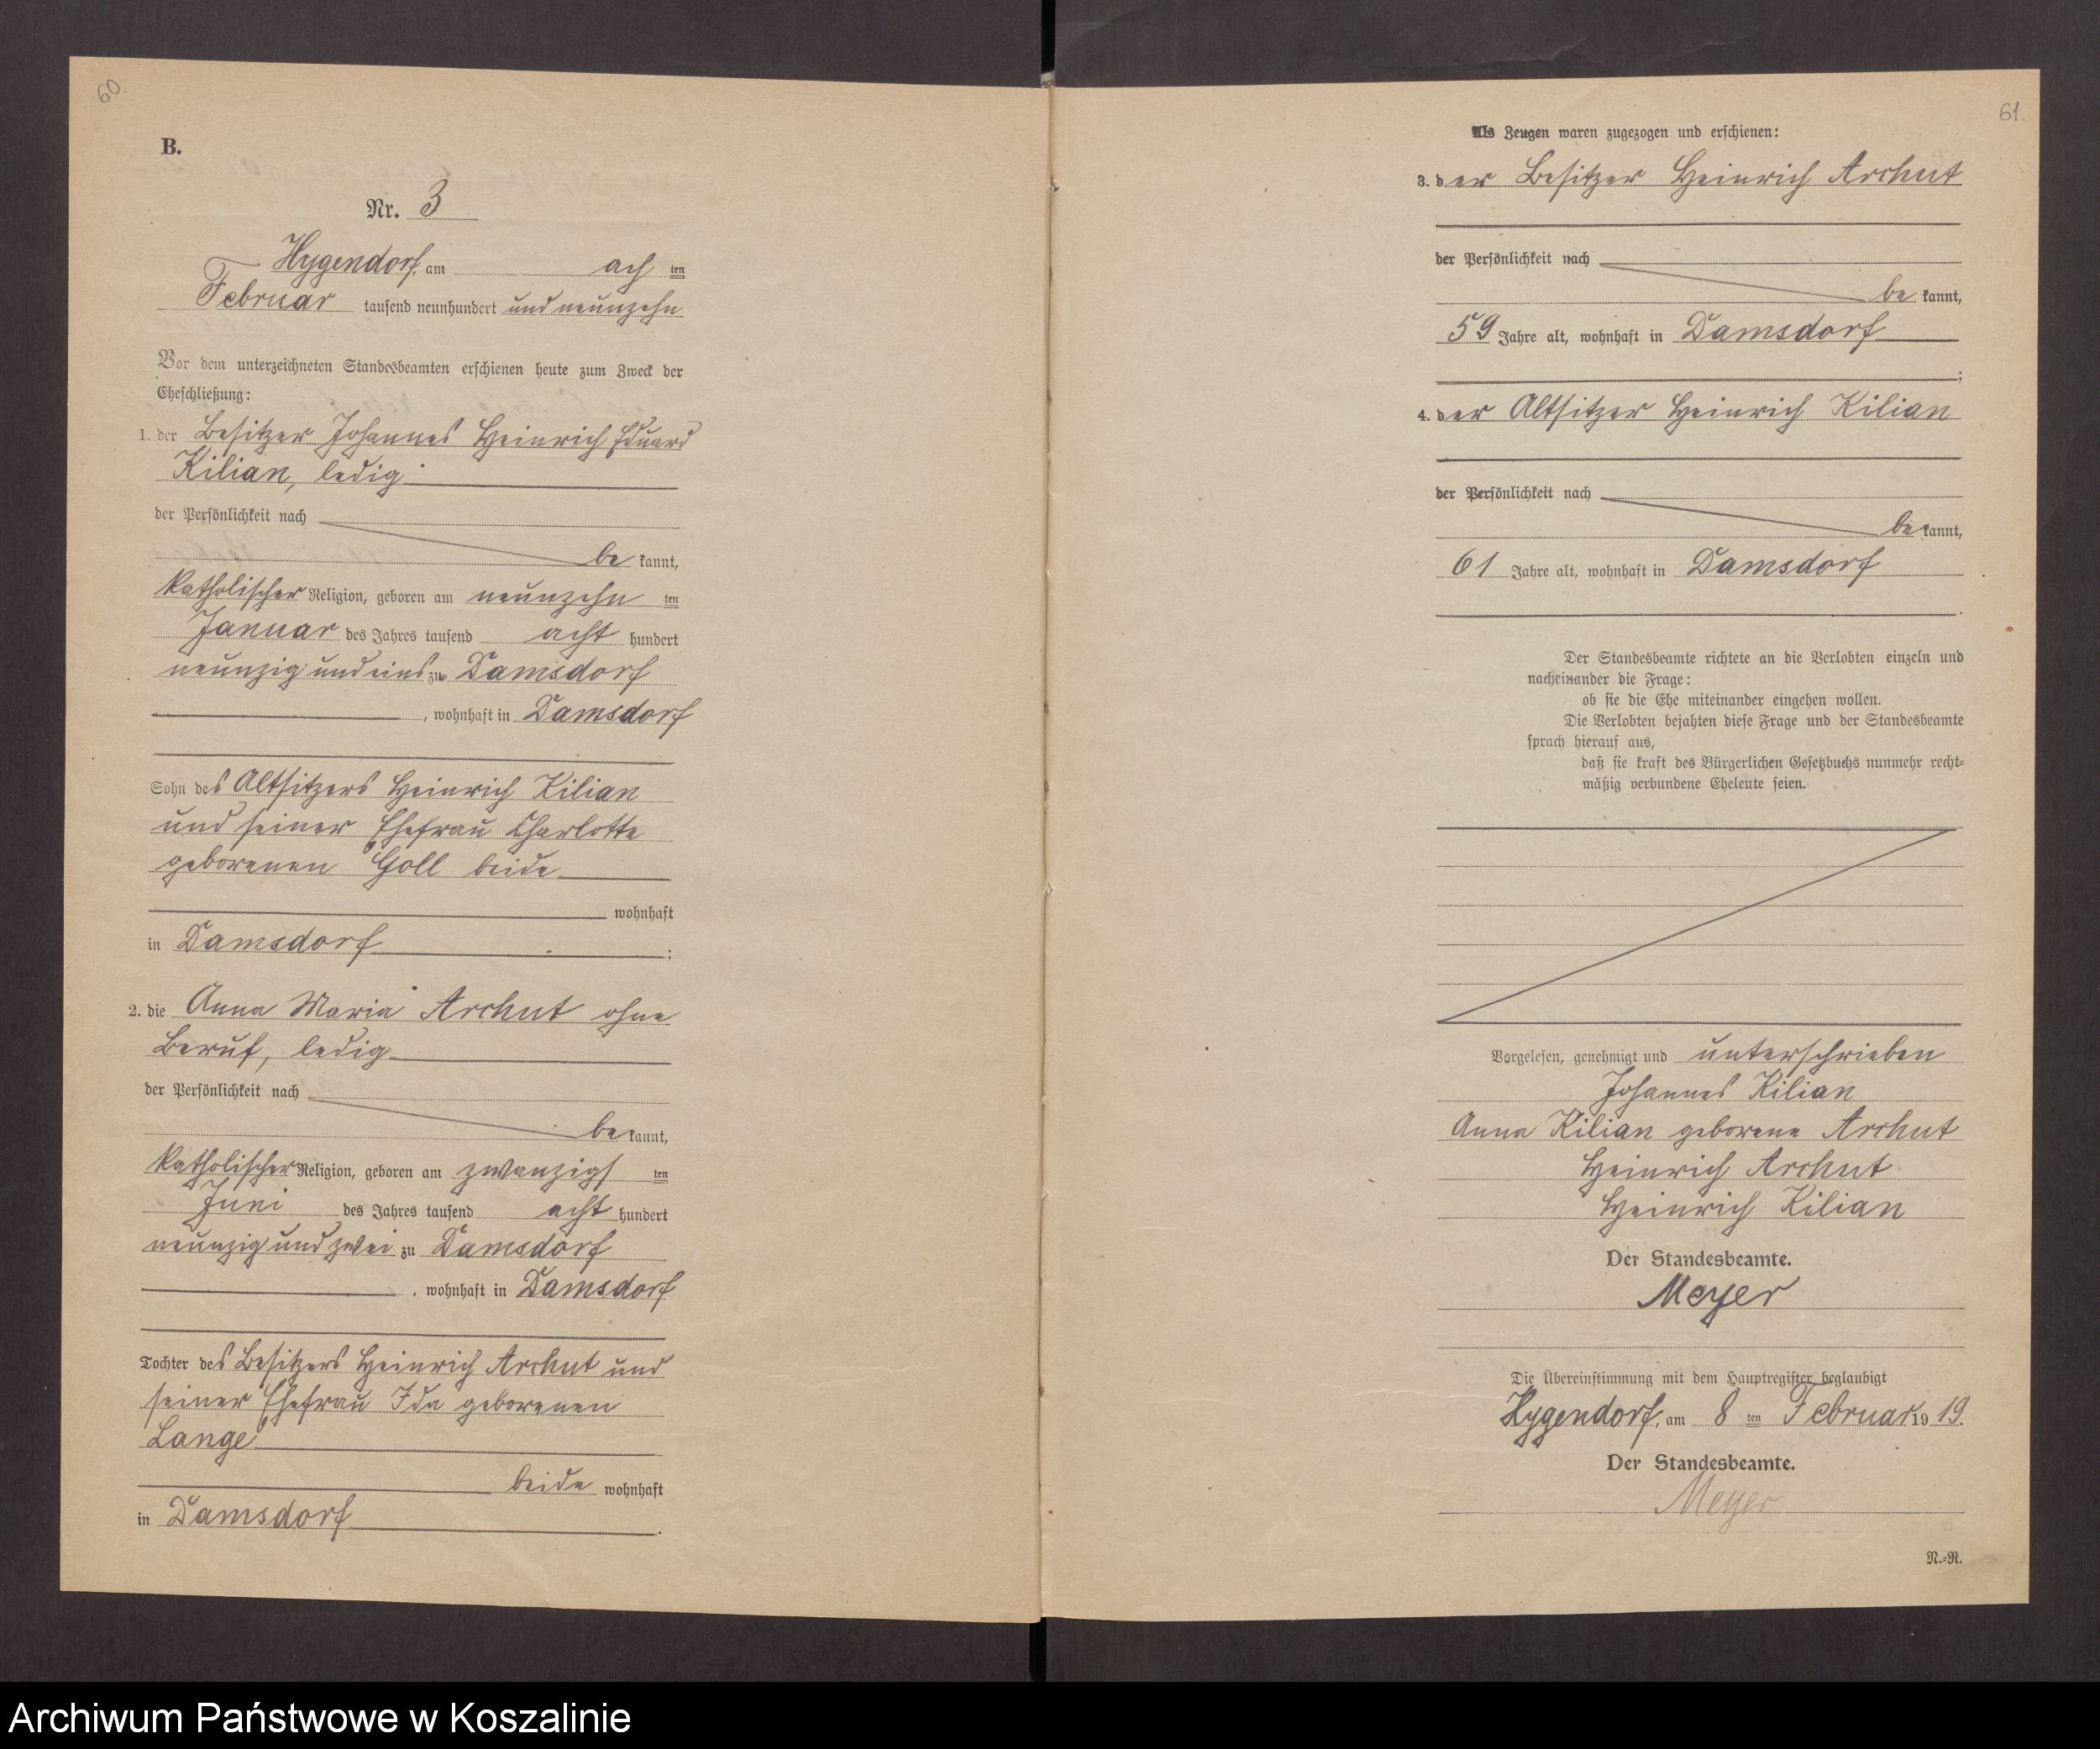 60.
B.
Nr. 3
Hygendorf, am ach ten
Februar tausend neunhundert und neunzehn
Vor dem unterzeichneten Standesbeamten erschienen heute zum Zweck der
Eheschließung:
1. der Besitzer Johannes Heinrich Eduard
Kilian, ledig
der Persönlichkeit nach
be kannt,
katholischer Religion, geboren am neunzehn ten
Januar des Jahres tausend acht hundert
neunzig und eins zu Damsdorf
, wohnhaft in Damsdorf
Sohn des Altsitzers Heinrich Kilian
und seiner Ehefrau Charlotte
geborenen Goll beide
wohnhaft
in Damsdorf ;
2. die Anna Maria Archut ohne
Beruf, ledig
der Persönlichkeit nach
be kannt,
katholischer Religion, geboren am zwanzigs ten
Juni des Jahres tausend acht hundert
neunzig und zwei zu Damsdorf
, wohnhaft in Damsdorf
Tochter des Besitzers Heinrich Archut und
seiner Ehefrau Ida geborenen
Lange
beide wohnhaft
in Damsdorf .
61.
Als Zeugen waren zugezogen und erschienen:
3. der Besitzer Heinrich Archut
der Persönlichkeit nach
be kannt,
59 Jahre alt, wohnhaft in Damsdorf
;
4. der Altsitzer Heinrich Kilian
der Persönlichkeit nach
be kannt,
61 Jahre alt, wohnhaft in Damsdorf
.
Der Standesbeamte richtete an die Verlobten einzeln und
nacheinander die Frage:
ob sie die Ehe miteinander eingehen wollen.
Die Verlobten bejahten diese Frage und der Standesbeamte
sprach hierauf aus,
daß sie kraft des Bürgerlichen Gesetzbuchs nunmehr recht-
mäßig verbundene Eheleute seien.
Vorgelesen, genehmigt und unterschrieben
Johannes Kilian
Anna Kilian geborene Archut
Heinrich Archut
Heinrich Kilian
Der Standesbeamte.
Meyer
Die Übereinstimmung mit dem Hauptregister beglaubigt
Hygendorf, am 8 ten Februar 19 19.
Der Standesbeamte.
Meyer
N.-R.
Archiwum Państwowe w Koszalinie